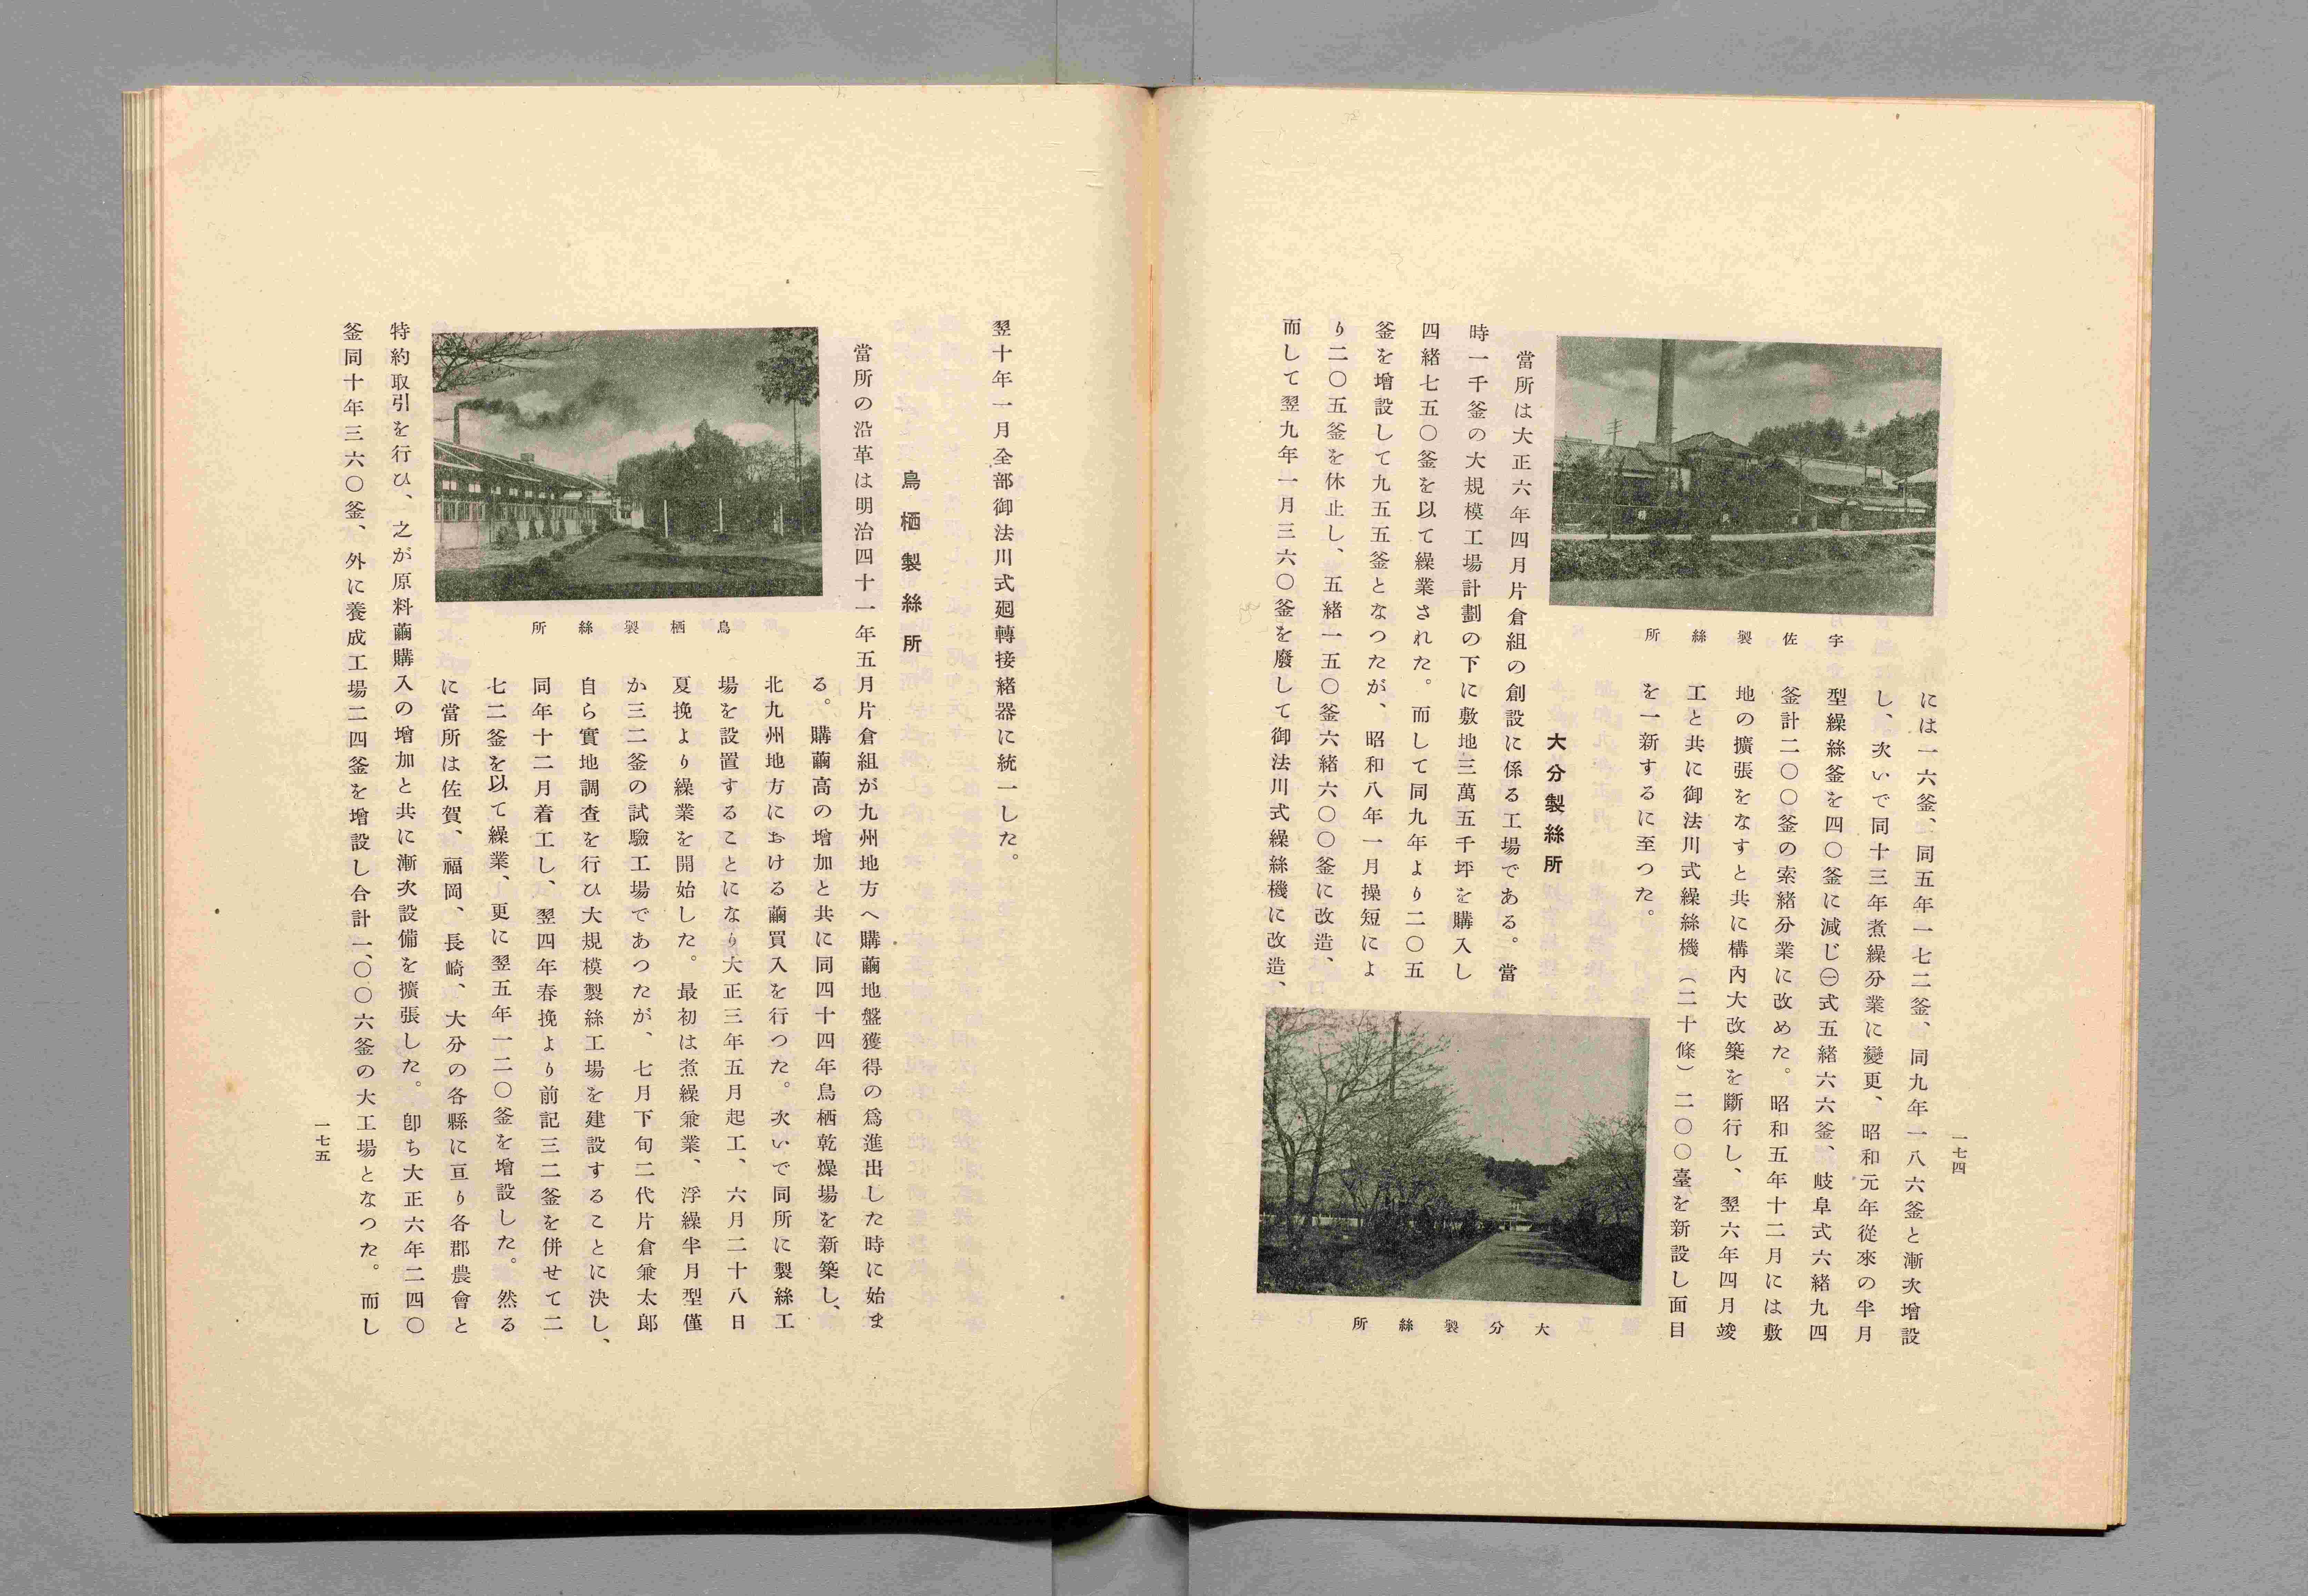 一七四
には一六釜、同五年一七二釜、同九年一八六釜と漸次增設
し、次いで同十三年煮繰分業に變更、昭和元年從來の半月
型繰絲釜を四〇釜に減じ㊀式五緒六六釜、岐阜式六緒九四
釜計二〇〇釜の索緒分業に改めた。昭和五年十二月には敷
地の擴張をなすと共に構內大改築を斷行し、翌六年四月竣
工と共に御法川式繰絲機（二十條）二〇〇臺を新設し面目
を一新するに至つた。
宇佐製絲所
大分製絲所
當所は大正六年四月片倉組の創設に係る工場である。當
時一千釜の大規模工場計劃の下に敷地三萬五千坪を購入し
四緒七五〇釜を以て繰業された。而して同九年より二〇五
釜を增設して九五五釜となつたが、昭和八年一月操短によ
り二〇五釜を休止し、五緒一五〇釜六緒六〇〇釜に改造、
而して翌九年一月三六〇釜を廢して御法川式繰絲機に改造、
大分製絲所
翌十年一月全部御法川式廻轉接緒器に統一した。
鳥栖製絲所
當所の沿革は明治四十一年五月片倉組が九州地方へ購繭地盤獲得の爲進出した時に始ま
る。購繭高の增加と共に同四十四年鳥栖乾燥場を新築し、
北九州地方における繭買入を行つた。次いで同所に製絲工
場を設置することになり大正三年五月起工、六月二十八日
夏挽より繰業を開始した。最初は煮繰兼業、浮繰半月型僅
か三二釜の試驗工場であつたが、七月下旬二代片倉兼太郎
自ら實地調査を行ひ大規模製絲工場を建設することに決し、
同年十二月着工し、翌四年春挽より前記三二釜を併せて二
七二釜を以て繰業、更に翌五年一二〇釜を增設した。然る
に當所は佐賀、福岡、長崎、大分の各縣に亘り各郡農會と
特約取引を行ひ、之が原料繭購入の增加と共に漸次設備を擴張した。卽ち大正六年二四〇
釜同十年三六〇釜、外に養成工場二四釜を增設し合計一、〇〇六釜の大工場となつた。而し
鳥栖製絲所
一七五